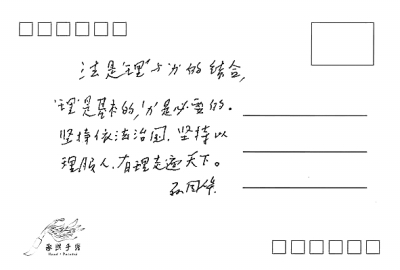 法是"理"与"力"的结合，
"理"是基本的，"力"是必要的。
坚持依法治国，坚持以
理服人，有理走遍天下。
孙国华